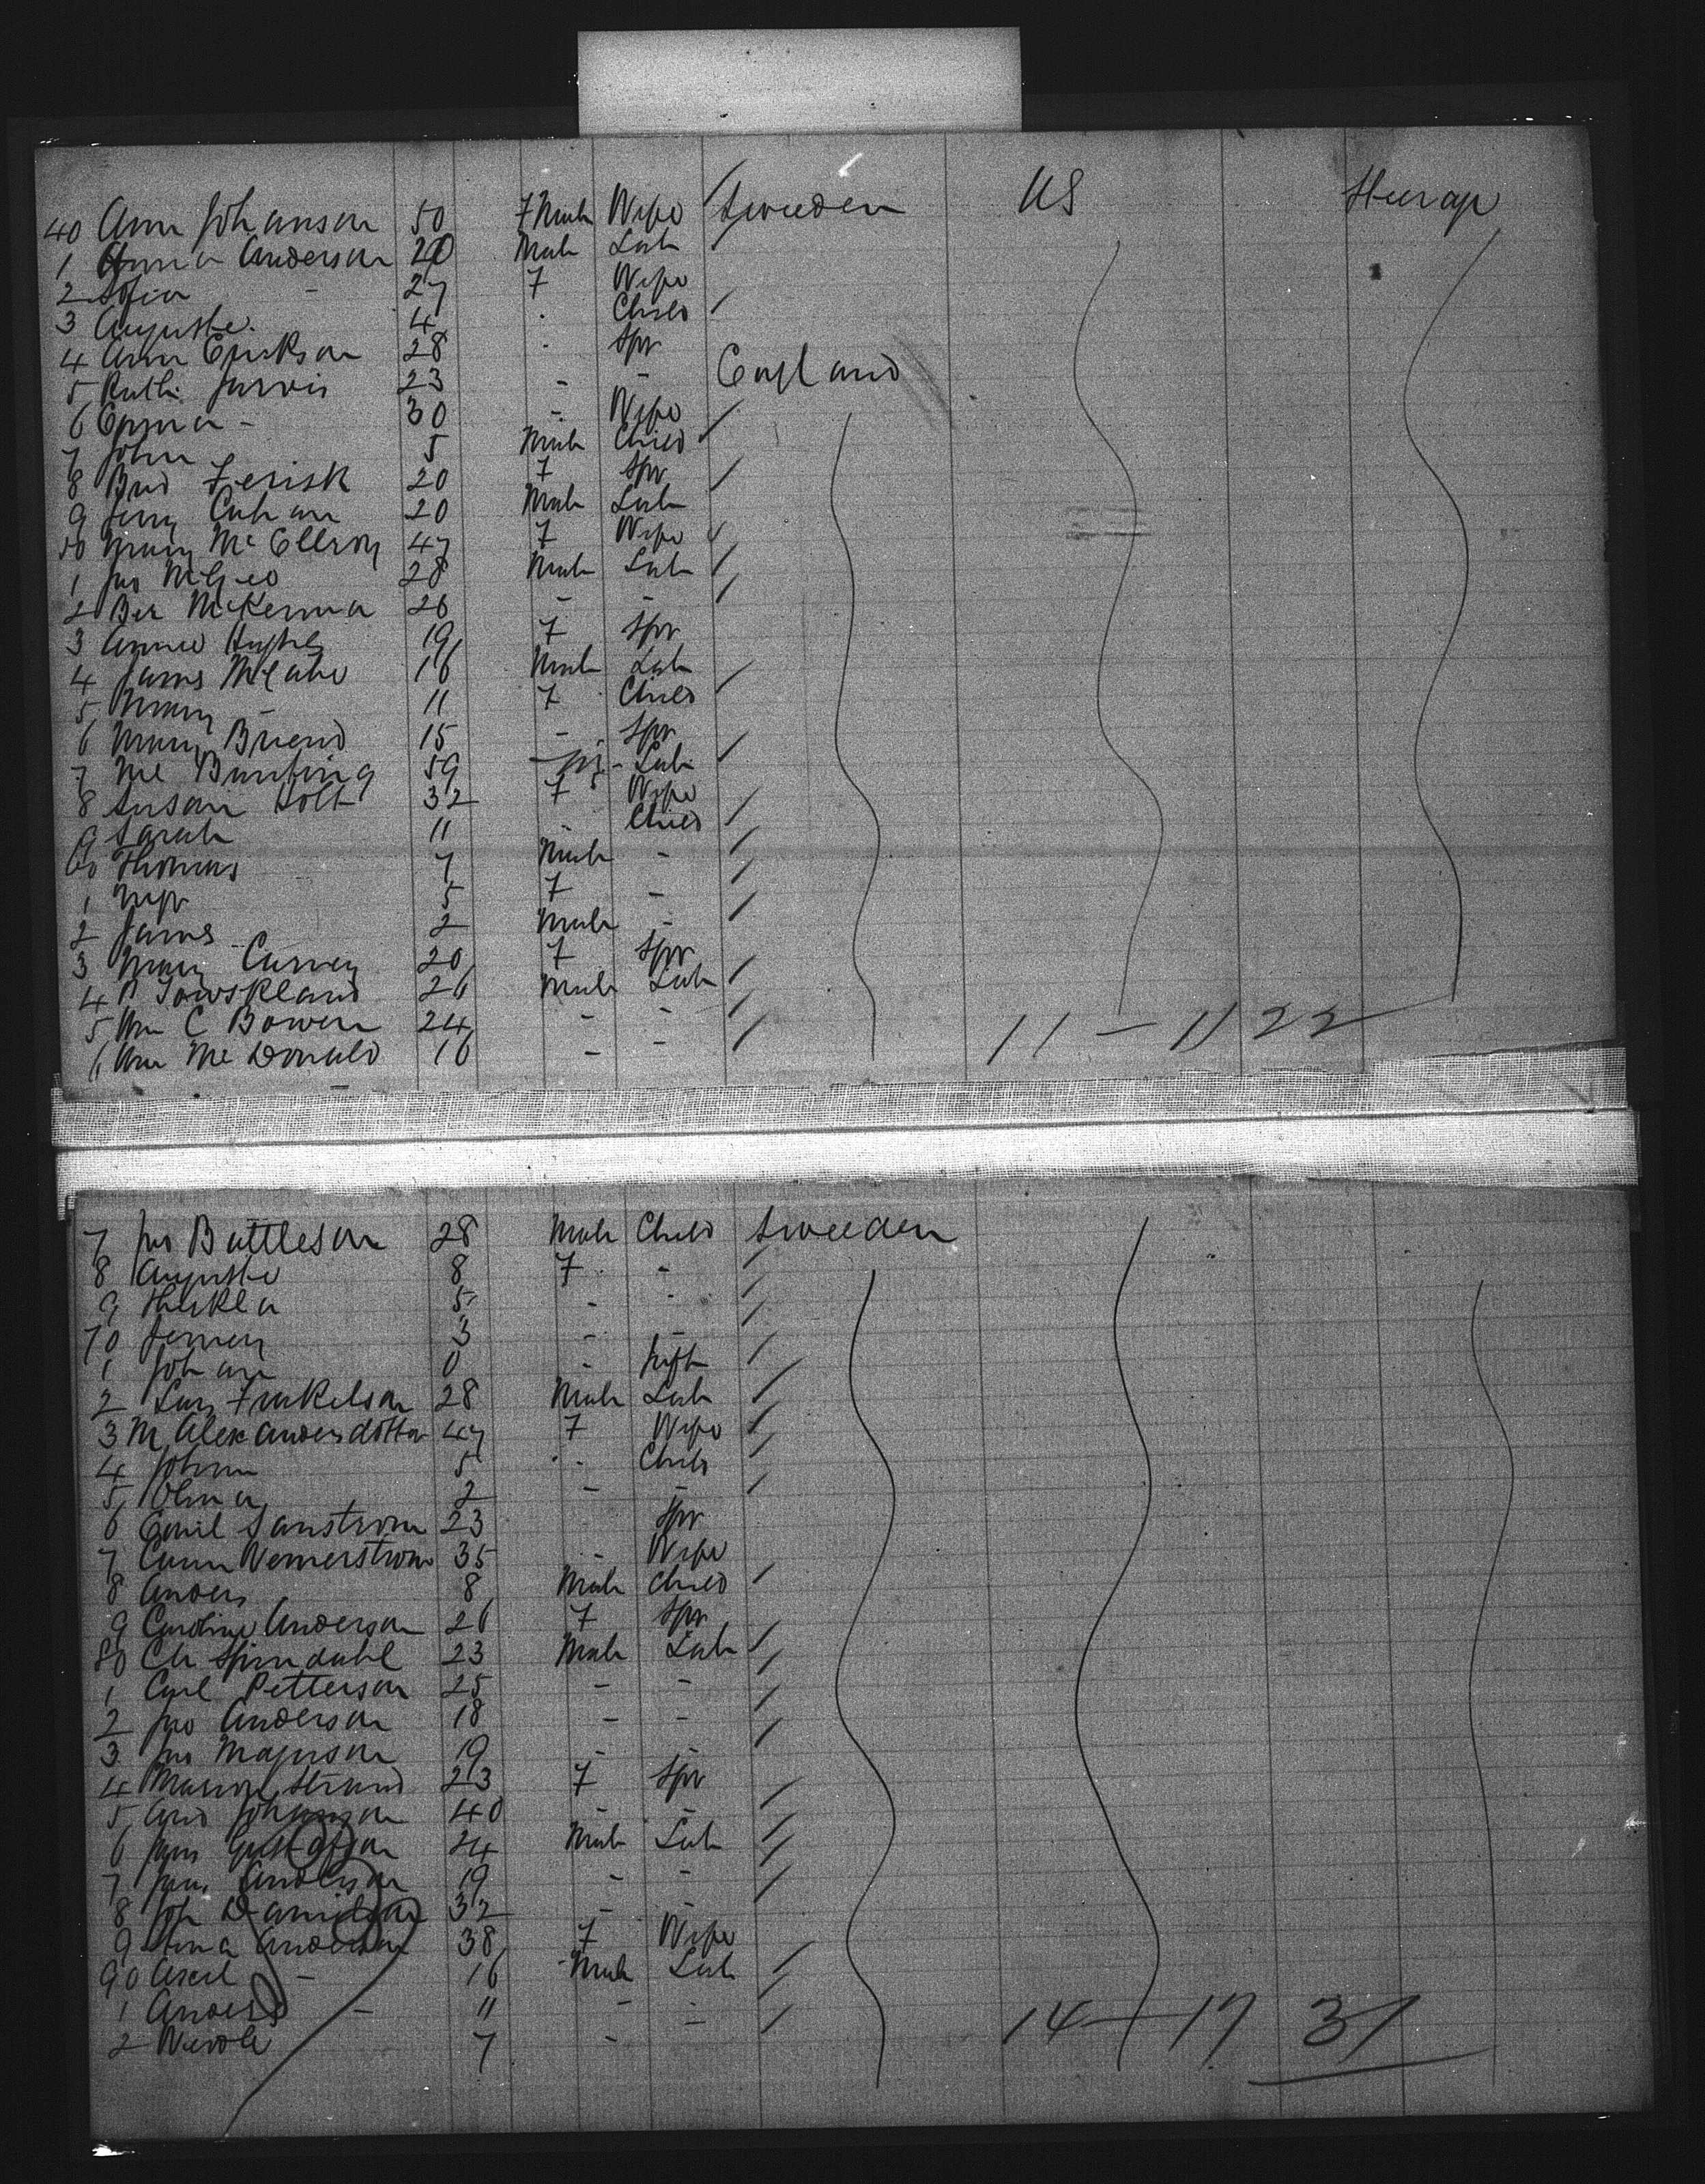 40 Ann Johanson 50 F Male Wife Sweeden US Steerage
1 Anna Anderson 20 Male Lab
2 Sofia - 27 F Wife
3 Auguste 4 Child
4 Ann Erikson 28 Spr
5 Ruth Jarvis 23 - - England
6 Emma - 30 - Wife
7 John 5 Male Child
8 Brid 20 F Spr
9 Jerry 20 Male Lab
50 Mary McEllroy 47 F Wife
1 Jno McGeo 28 Male Lab
2 Ber McKenna 26 - -
3 Annie Hughes 19 F Spr
4 James McCabe 16 Male Lab
5 Mary - 11 F Child
6 Mary Briend 15 - Spr
7 Bunting 59 M Lab
8 Susan Holt 32 F Wife
9 Sarah 11 - Child
60 Thomas 7 Male -
1 5 F -
2 James 2 Male -
3 Mary Carvey 20 F Spr
4 26 Male Lab
5 Wm C Bowen 24 - -
6 Wm McDonald 16 - -
11 - 11 22
7 Jno Battleson 28 Male Child Sweeden
8 Auguste 8 F -
9 Thekla 5 - -
70 3 - -
1 Johan 0 - Inft
2 28 Male Lab
3 M Alexandersdotter 47 F Wife
4 Johan 5 - Child
5 2 - -
6 Emil Sanstrom 23 Spr
7 35 - Wife
8 Anders 8 Male Child
9 Caroline Anderson 26 F Spr
80 Ch Spindahl 23 Male Lab
1 Carl Petterson 25 - -
2 Jno Anderson 18 - -
3 Jno Magnson 19 - -
4 Strand 23 F Spr
5 Johanson 40 - -
6 Gustafson 24 Male Lab
7 Anderson 19 - -
8 Joh Danielson 32 - -
9 Anna Anderson 38 F Wife
90 Axel - 16 Male Lab
1 Anders - 11 - -
2 7 -
14 - 17 31